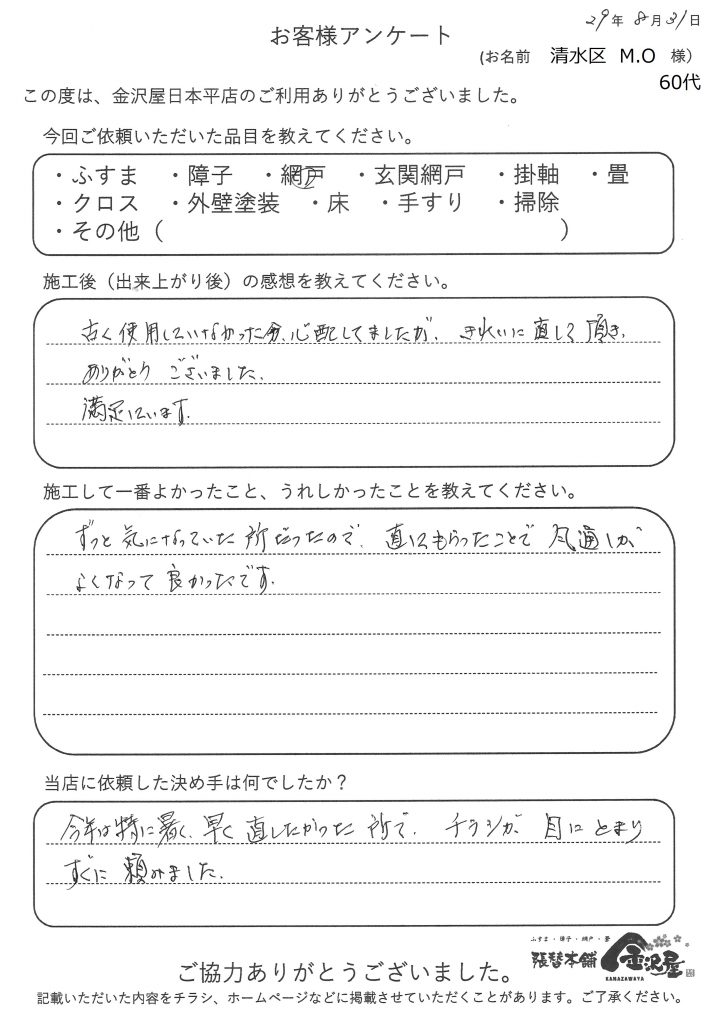 29年8月31日
お客様アンケート
(お名前 清水区 M.O 様)
60代
この度は、金沢屋日本平店のご利用ありがとうございました。
今回ご依頼いただいた品目を教えてください。
・ふすま ・障子 ・網戸 ・玄関網戸 ・掛軸 ・畳
・クロス ・外壁塗装 ・床 ・手すり ・掃除
・その他( )
施工後(出来上がり後)の感想を教えてください。
古く使用していなかった分、心配してましたが、きれいに直して頂き、
ありがとうございました。
満足しています。
施工して一番よかったこと、うれしかったことを教えてください。
ずっと気になっていた所だったので、直してもらったことで風通しが
よくなって良かったです。
当店に依頼した決め手は何でしたか?
今年は特に暑く、早く直したかった所で、チラシが目にとまり
すぐに頼みました。
ふすま・障子・網戸・畳
張替本舗 金沢屋
KANAZAWAYA
ご協力ありがとうございました。
記載いただいた内容をチラシ、ホームページなどに掲載させていただくことがあります。ご了承ください。